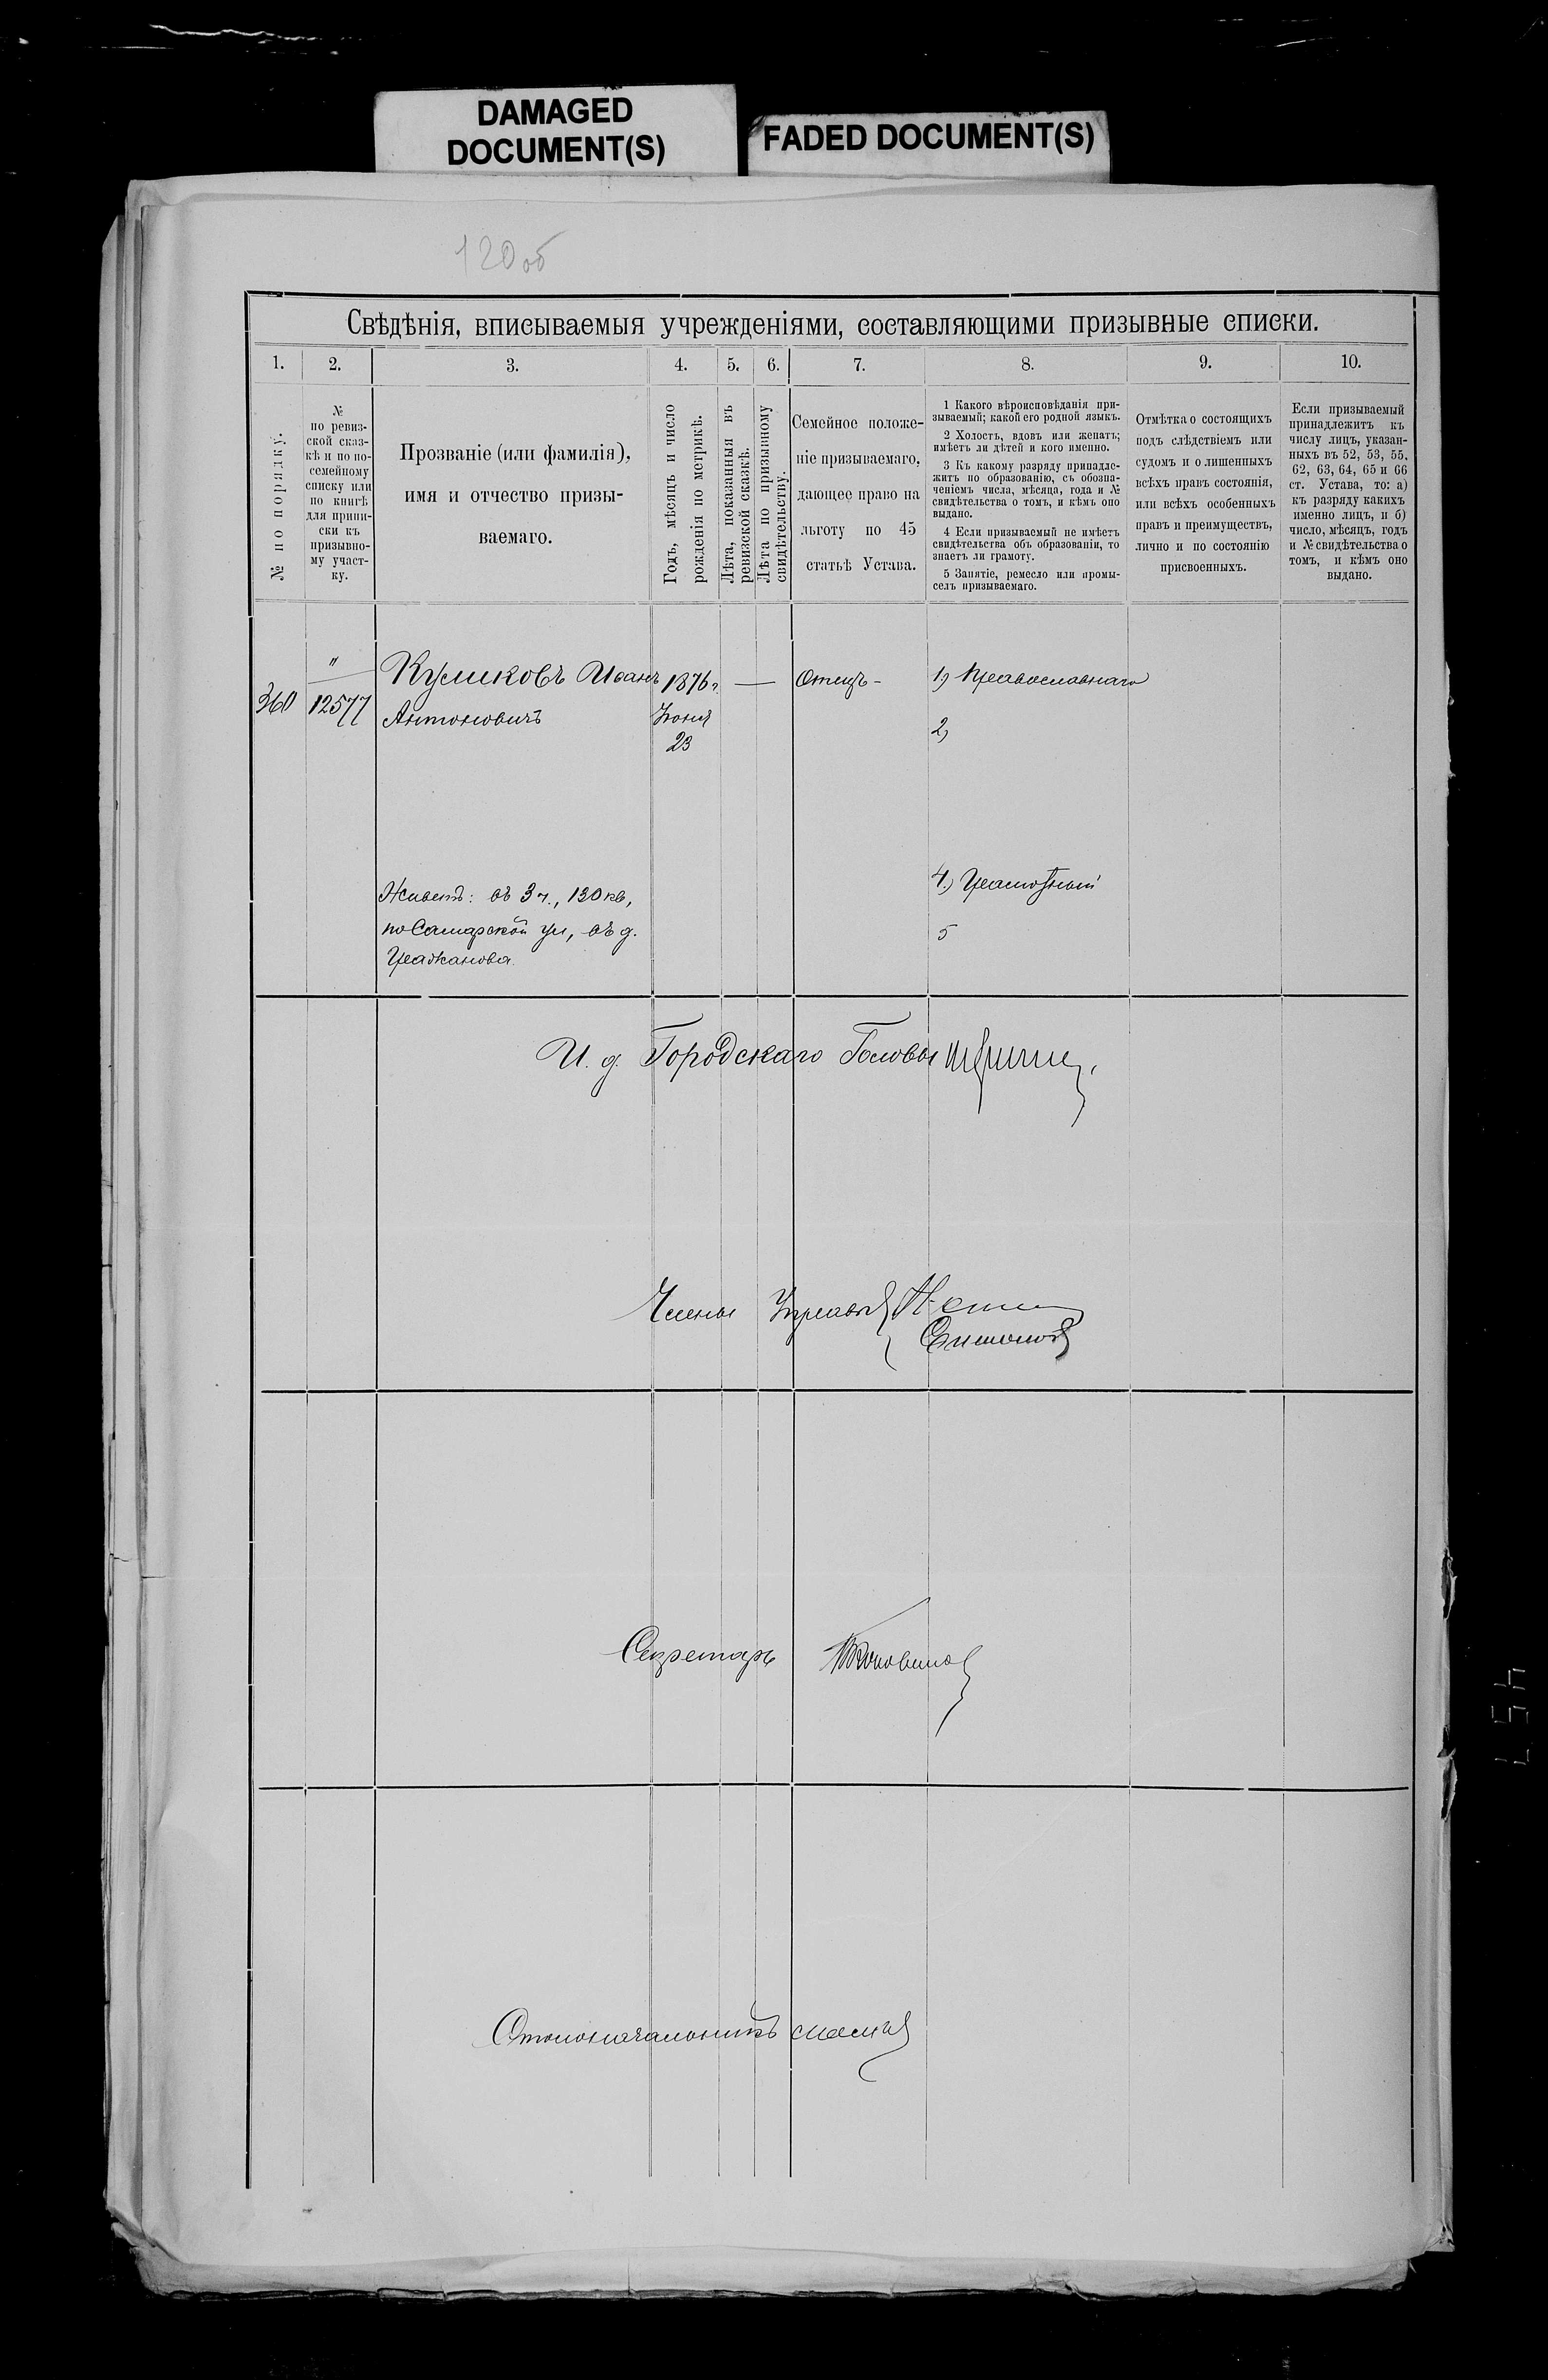 DAMAGED
DOCUMENT(S)
FADED DOCUMENT(S)
120 об
Свѣдѣнія, вписываемыя учрежденіями, составляющими призывные списки.
1.
2.
3.
4.
5.
6.
7.
8.
9.
10.
№ по порядку.
№
по ревиз-
ской сказ-
кѣ и по по-
семейному
списку или
по книгѣ
для припи-
ски къ
призывно-
му участ-
ку.
Прозваніе (или фамилія),
имя и отчество призы-
ваемаго.
Годъ, мѣсяцъ и число
рожденія по метрикѣ.
Лѣта, показанныя въ
ревизской сказкѣ.
Лѣта по призывному
свидѣтельству.
Семейное положе-
ніе призываемаго,
дающее право на
льготу по 45
статьѣ Устава.
1 Какого вѣроисповѣданія при-
зываемый; какой его родной языкъ.
2 Холостъ, вдовъ или женатъ;
имѣетъ ли дѣтей и кого именно.
3 Къ какому разряду принадле-
житъ по образованію, съ обозна-
ченіемъ числа, мѣсяца, года и №
свидѣтельства о томъ, и кѣмъ оно
выдано.
4 Если призываемый не имѣетъ
свидѣтельства объ образованіи, то
знаетъ ли грамоту.
5 Занятіе, ремесло или промы-
селъ призываемаго.
Отмѣтка о состоящихъ
подъ слѣдствіемъ или
судомъ и о лишенныхъ
всѣхъ правъ состоянія,
или всѣхъ особенныхъ
правъ и преимуществъ,
лично и по состоянію
присвоенныхъ.
Если призываемый
принадлежитъ къ
числу лицъ, указан-
ныхъ въ 52, 53, 55,
62, 63, 64, 65 и 66
ст. Устава, то: а)
къ разряду какихъ
именно лицъ, и б)
число, мѣсяцъ, годъ
и № свидѣтельства о
томъ, и кѣмъ оно
выдано.
360
"
12577
Куликовъ Иванъ
Антоновичъ
1876 г.
Іюня
23
—
Отецъ -
1) Православнаго
2)
4.) Грамотный
5
Живетъ: въ 3 ч., 130 кв,
по Самарской ул, въ д.
И. д. Городскаго Головы
Члены Управы
Симонов
Секретарь
Столоначальникъ
457